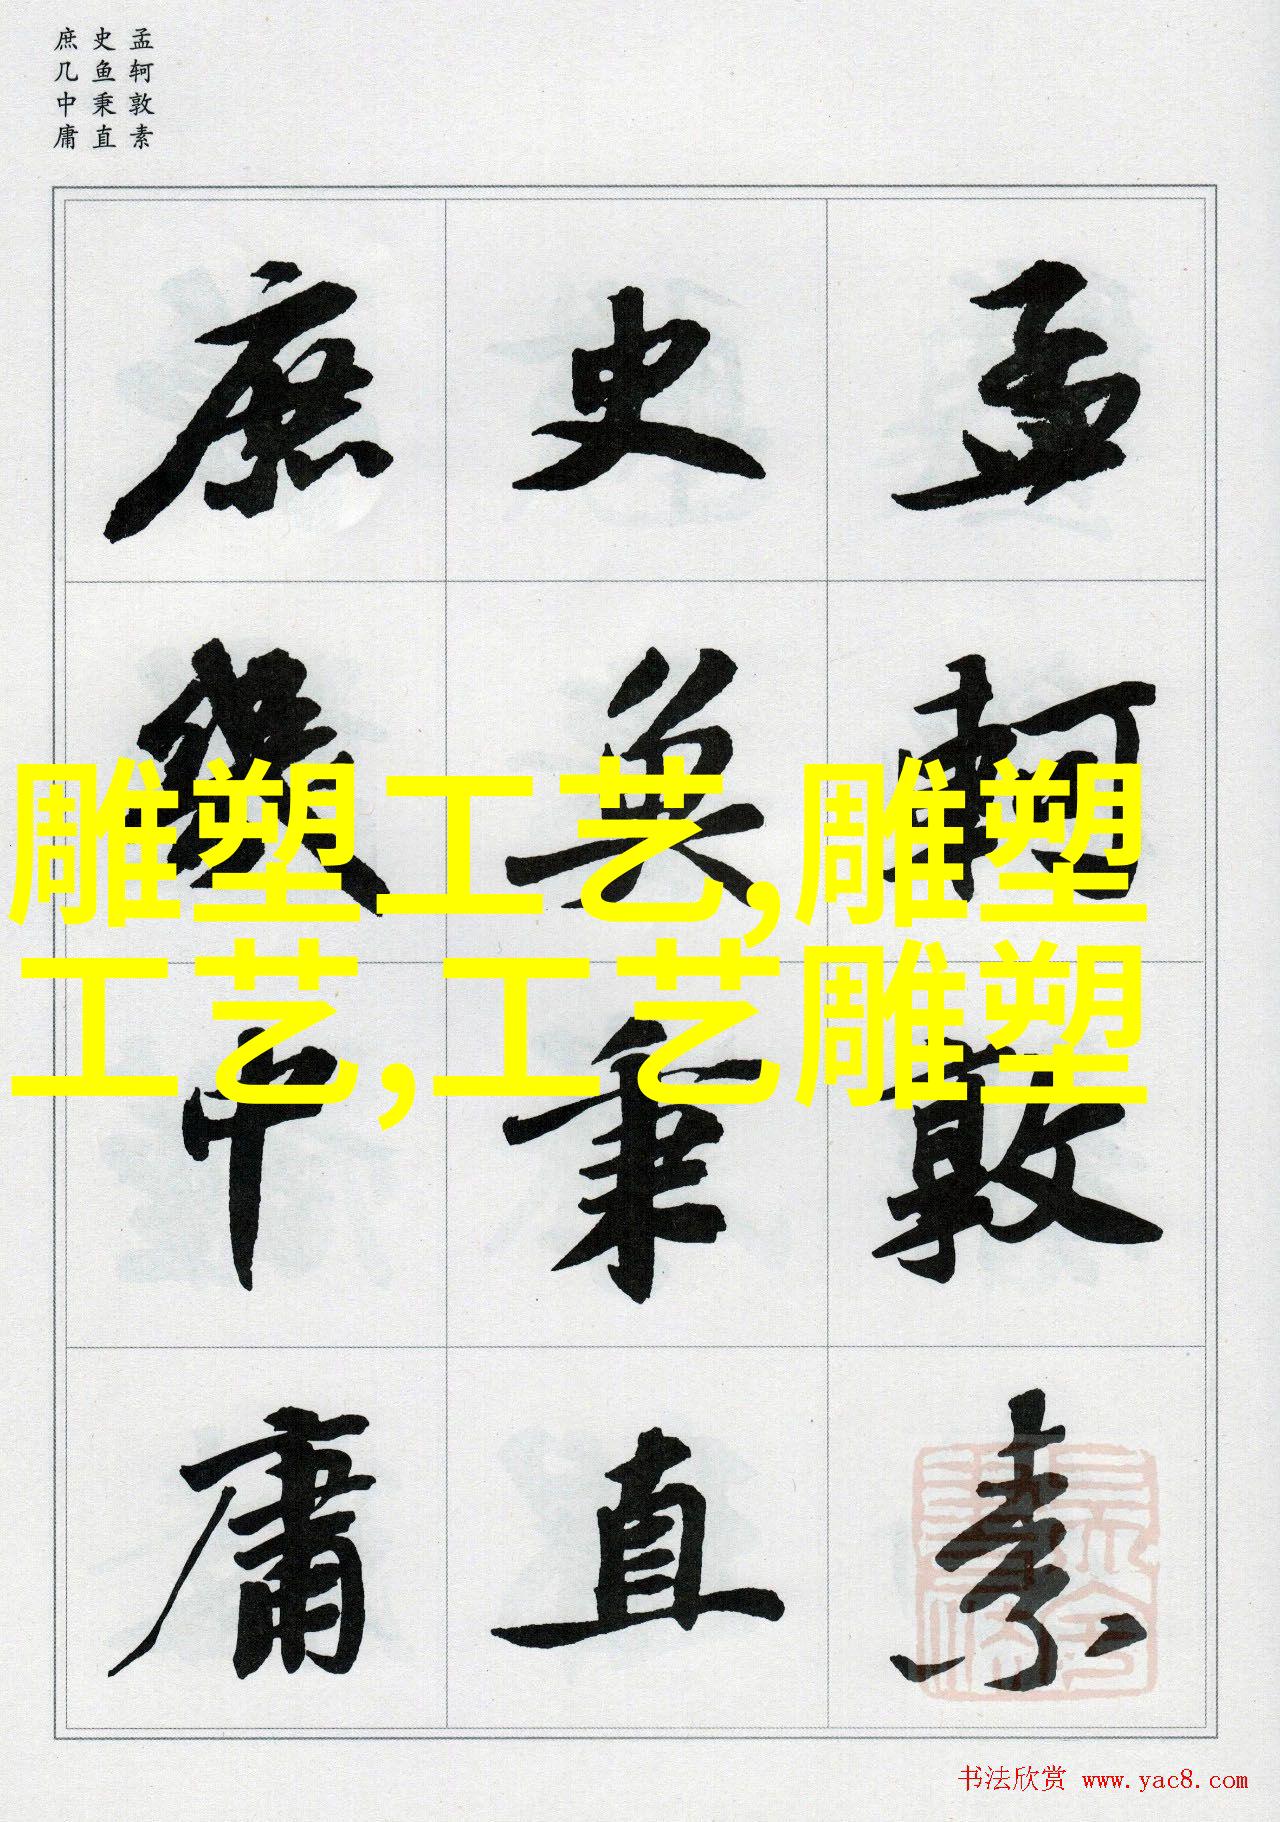 孟轲敦素
史鱼秉直
庶几中庸
孟轲敦素
史鱼秉直
庶几中庸
雕塑工艺,雕塑
工艺,工艺雕塑
书法欣赏 www.yac8.com